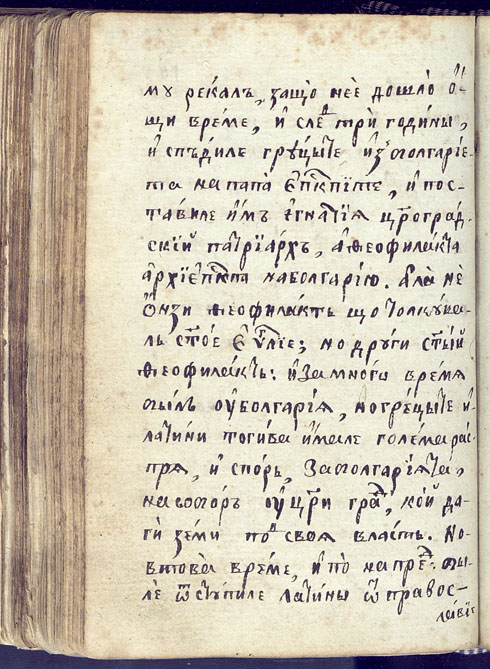 му рекалъ, защо нее дошло о-
щи време, и слеⷣ три години,
и спъдиле грцыте изъ болгарїе-
та на папа епⷭкпите, и пос-
тавиле имъ игнатїя цр҃оград-
скїй патрїархъ, а ѳеофилакта
архїепⷭкпа на болгарїю. Ала не
онзи ѳеофилактъ що толкува-
лъ ст҃ое еѵⷢ҇лїе; но други ст҃ый
ѳеофилактъ: и за много время
былъ оу болгарїя, но грецыте и
латини тогива имале голема рас-
пря, и споръ, за болгарїята,
на соборъ оу цр҃и граⷣ, кой да
ги земи поⷣ своя власть. Но
в това време, и по напреⷣ бы-
ле ѿступиле латины ѿ правос-
лавїе